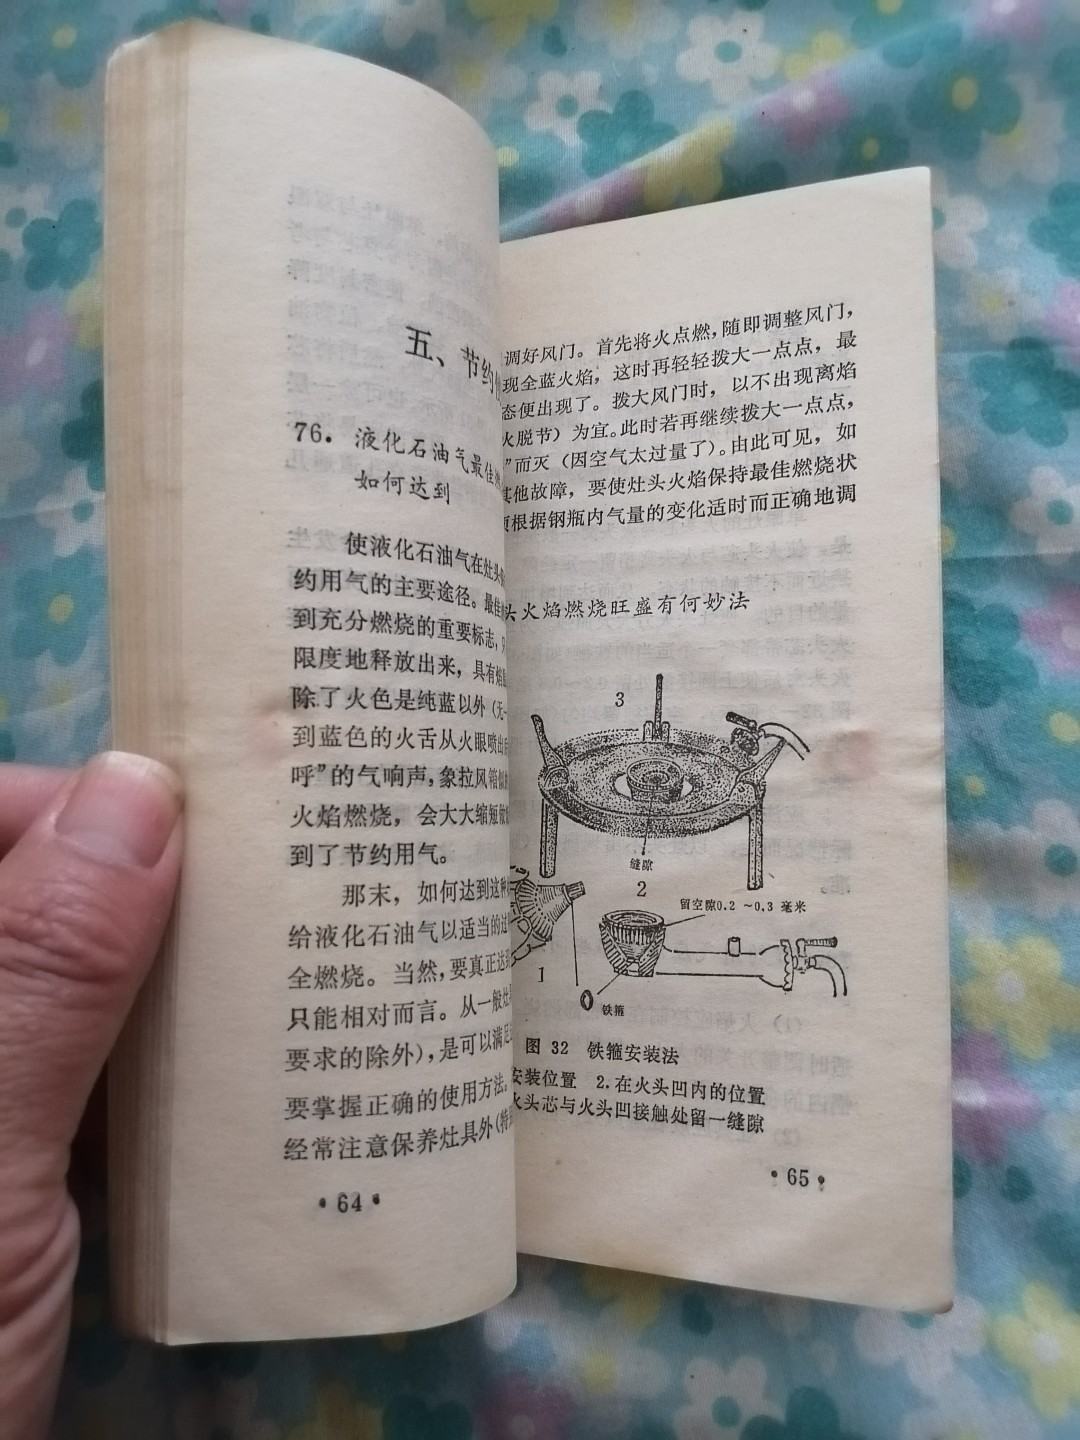 五、节约
76. 液化石油气最佳
如何达到
使液化石油气在灶头
约用气的主要途径。最佳
到充分燃烧的重要标志，
限度地释放出来，具有焰
除了火色是纯蓝以外（无一
到蓝色的火舌从火眼喷出
呼”的气响声，象拉风箱似
火焰燃烧，会大大缩短
到了节约用气。
那末，如何达到这种
给液化石油气以适当的过
全燃烧。当然，要真正达到
只能相对而言。从一般灶
要求的除外），是可以满足
要掌握正确的使用方法。
经常注意保养灶具外（特
•64•
调好风门。首先将火点燃，随即调整风门，
现全蓝火焰，这时再轻轻拨大一点点，最
态便出现了。拨大风门时，以不出现离焰
火脱节）为宜。此时若再继续拨大一点点，
”而灭（因空气太过量了）。由此可见，如
其他故障，要使灶头火焰保持最佳燃烧状
根据钢瓶内气量的变化适时而正确地调
头火焰燃烧旺盛有何妙法
3
缝隙
2
留空隙0.2～0.3毫米
1
铁箍
图 32 铁箍安装法
安装位置 2.在火头凹内的位置
火头芯与火头凹接触处留一缝隙
•65•